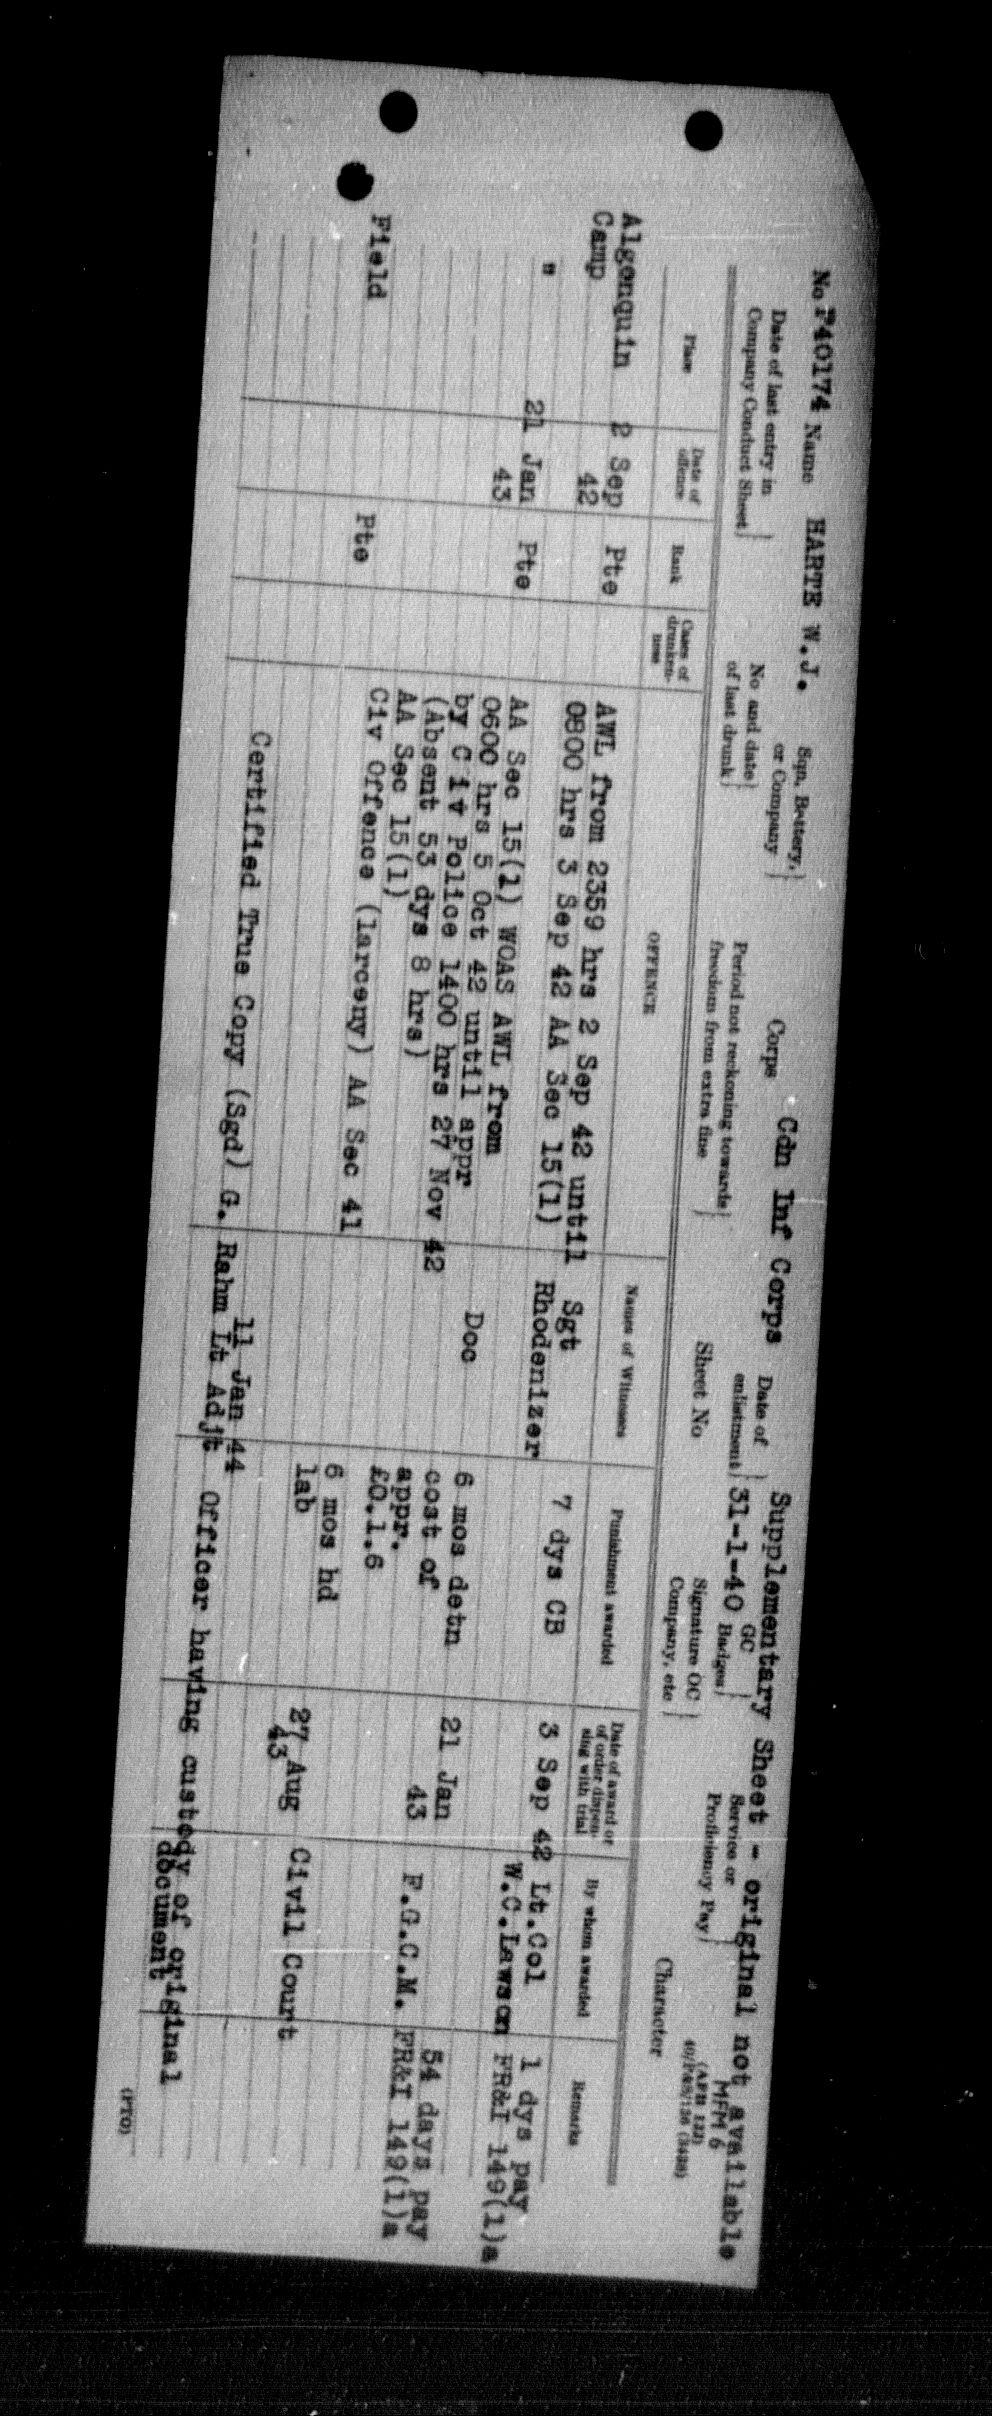 Supplementary Sheet - original not available
MFM 6
(AFB 122)
No F40174 Name HARTE W.J. Sqn. Battery, or Company Corps Cdn Inf Corps Date of enlistment 31-1-40 GC Badges Service or Proficiency Pay
Date of last entry in Company Conduct Sheet No and date of last drunk Period not reckoning towards freedom from extra fine Sheet No Signature OC Company, etc Character
Place Date of offence Rank Cases of drunken-ness OFFENCE Names of Witnesses Punishment awarded Date of award or of order dispen-sing with trial By whom awarded Remarks
Algonquin 2 Sep Pte AWL from 2359 hrs 2 Sep 42 until Sgt 7 dys CB 3 Sep 42 Lt.Col 1 dys pay
Camp 42 0800 hrs 3 Sep 42 AA Sec 15(1) Rhodenizer W.C.Lawson FR&I 149(1)a
" 21 Jan Pte AA Sec 15(1) WOAS AWL from
43 0600 hrs 5 Oct 42 until appr Doc 6 mos detn 21 Jan F.G.C.M. 54 days pay
by Civ Police 1400 hrs 27 Nov 42 cost of 43 FR&I 149(1)a
(Absent 53 dys 8 hrs) appr.
AA Sec 15(1) £0.1.6
Field Pte Civ Offence (larceny) AA Sec 41 6 mos hd 27 Aug Civil Court
lab 43
11 Jan 44
Certified True Copy (Sgd) G. Rahm Lt Adjt Officer having custody of original
document
(PTO)